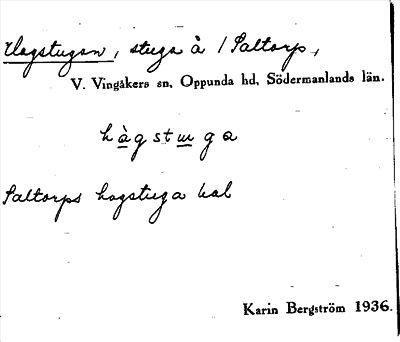 Hagstugan, stuga å 1 Saltorp,
V. Vingåkers sn, Oppunda hd, Södermanlands län.
hàgstuga
Saltorps hagstuga kal
Karin Bergström 1936.